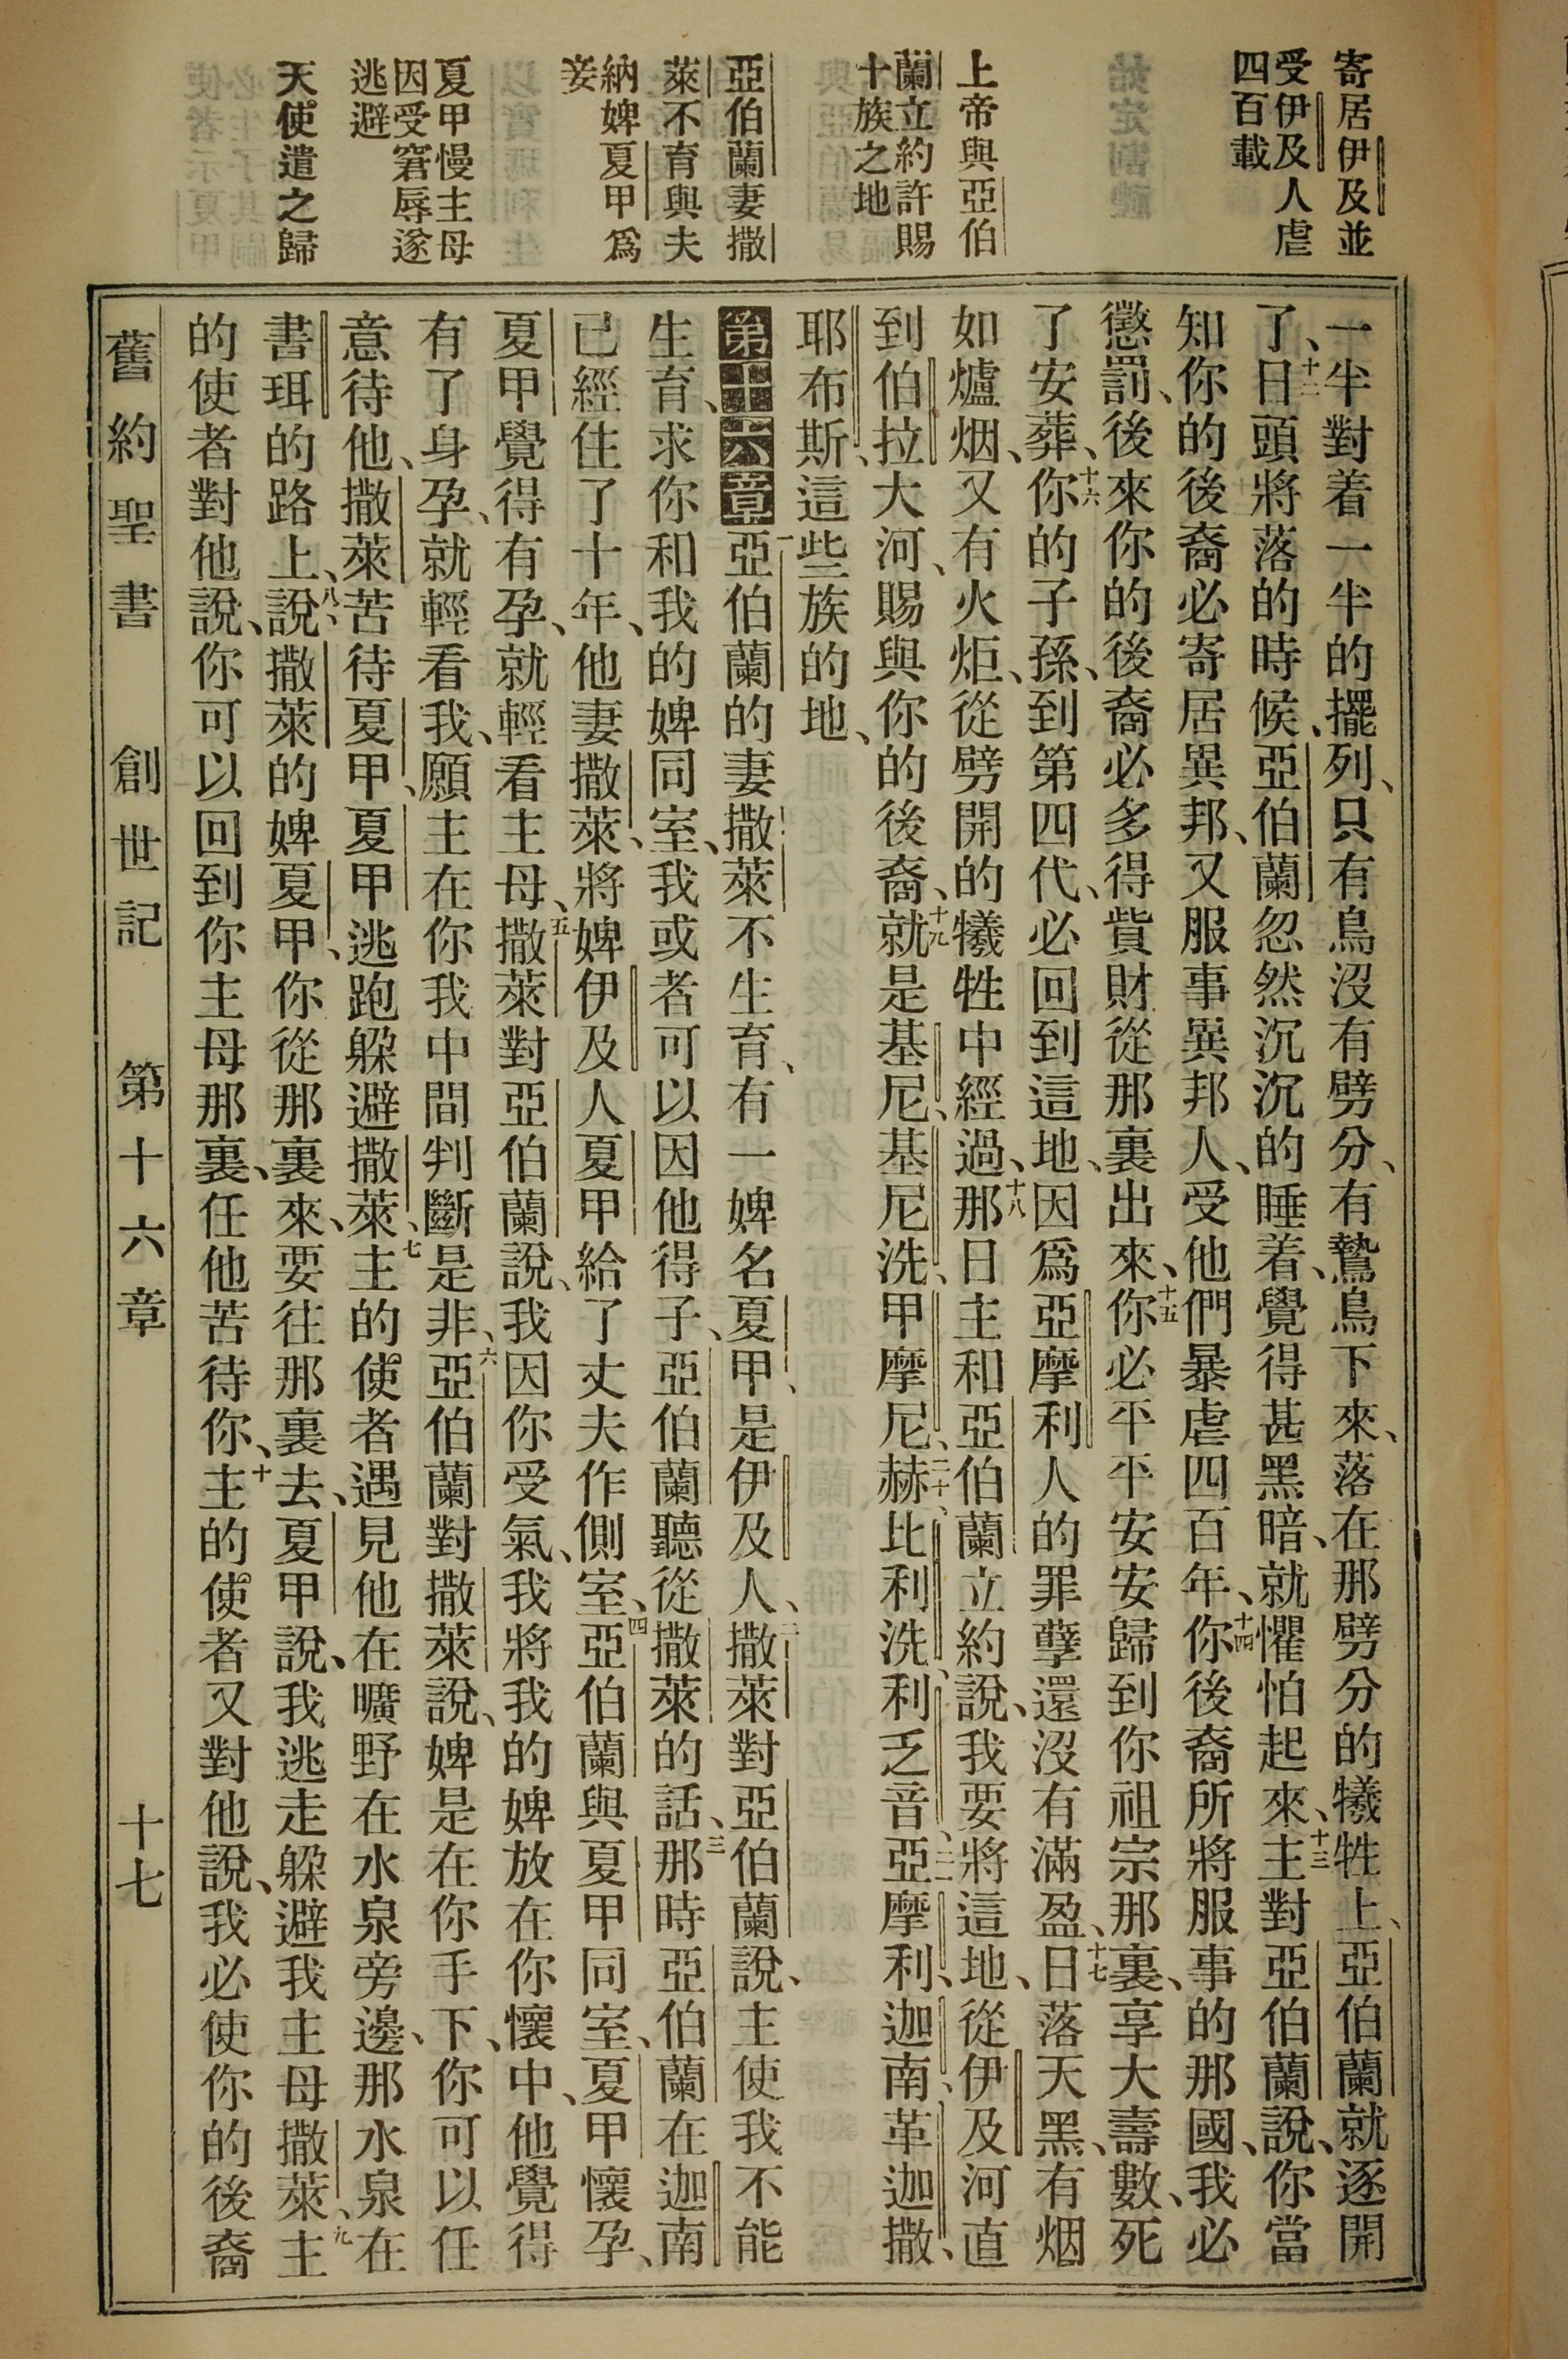 寄居伊及並
受伊及人虐
四百載
上帝與亞伯
蘭立約許賜
十族之地
亞伯蘭妻撒
萊不育與夫
納婢夏甲爲
妾
夏甲慢主母
因受窘辱遂
逃避
天使遣之歸
一半對着一半的擺列、只有鳥沒有劈分、有鷙鳥下來、落在那劈分的犧牲上、亞伯蘭就逐開
了、十二日頭將落的時候、亞伯蘭忽然沉沉的睡着、覺得甚黑暗、就懼怕起來、十三主對亞伯蘭說、你當
知你的後裔必寄居異邦、又服事異邦人、受他們暴虐四百年、十四你後裔所將服事的那國、我必
懲罰、後來你的後裔必多得貲財從那裏出來、十五你必平平安安歸到你祖宗那裏、享大壽數、死
了安葬、十六你的子孫、到第四代、必回到這地、因爲亞摩利人的罪孽還沒有滿盈、十七日落天黑、有烟
如爐烟、又有火炬、從劈開的犧牲中經過、十八那日主和亞伯蘭立約說、我要將這地、從伊及河直
到伯拉大河、賜與你的後裔、十九就是基尼、基尼洗、甲摩尼、二十赫、比利洗、利乏音、二一亞摩利、迦南、革迦撒、
耶布斯、這些族的地、
第十六章一亞伯蘭的妻撒萊不生育、有一婢名夏甲、是伊及人、二撒萊對亞伯蘭說、主使我不能
生育、求你和我的婢同室、我或者可以因他得子、亞伯蘭聽從撒萊的話、三那時亞伯蘭在迦南
已經住了十年、他妻撒萊、將婢伊及人夏甲給了丈夫作側室、四亞伯蘭與夏甲同室、夏甲懷孕、
夏甲覺得有孕、就輕看主母、五撒萊對亞伯蘭說、我因你受氣、我將我的婢放在你懷中、他覺得
有了身孕、就輕看我、願主在你我中間判斷是非、六亞伯蘭對撒萊說、婢是在你手下、你可以任
意待他、撒萊苦待夏甲、夏甲逃跑躲避撒萊、七主的使者遇見他在曠野在水泉旁邊、那水泉在
書珥的路上、八說、撒萊的婢夏甲、你從那裏來、要往那裏去、夏甲說、我逃走躲避我主母撒萊、九主
的使者對他說、你可以回到你主母那裏、任他苦待你、十主的使者又對他說、我必使你的後裔
舊約聖書 創世記 第十六章 十七